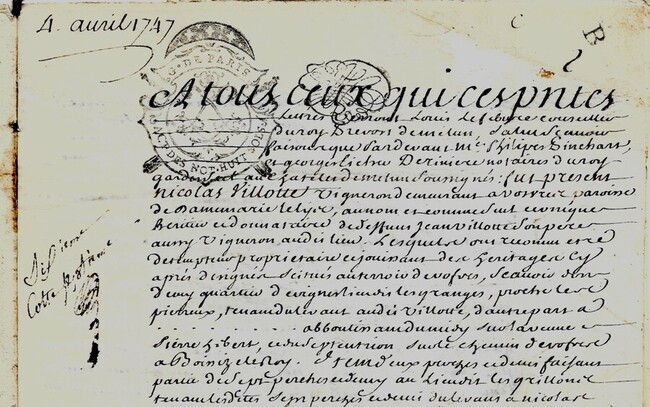 4. avril 1747
B
2
GEN. DE PARIS
VINGT DEN. HUIT
A tous ceux qui ces pntes
Lettres verront Louis Lefebure conseiller
du roy Prevost de melun Salut Scavoir
faisons que Pardevant Me. Philipes Guichart,
et georges notaires du roy
garden scel au chatelet de melun Soussignés: fut present
nicolas Villotte Vigneron demeurant a vosves paroisse
de Dammarie lelys, au nom et comme seul et unique
heritier et donnataire de deffunt Jean Villotte Son pere
aussy Vigneron audit lieu. Lesquels ont reconnu etre
detempteur proprietaire et jouissant des heritages cy
après designés Scitués au terroir de vosves, Scavoir
deux quartiers de vignes lieudit les granges, proche les
pierreux, tenant du levant audit villotte, d'autre part à
. . . . . . . . aboutissant du midy sur la veuve
Pierre Libert, et du Septentrion Sur le chemin de vosves
a Boissize le Roy. Item deux perches et demi faisant
partie de Sept perches et demy au Lieudit les grillons
tenant lesdites Sept perches et demi du levant a nicolas
Sixieme
Cotte Septieme